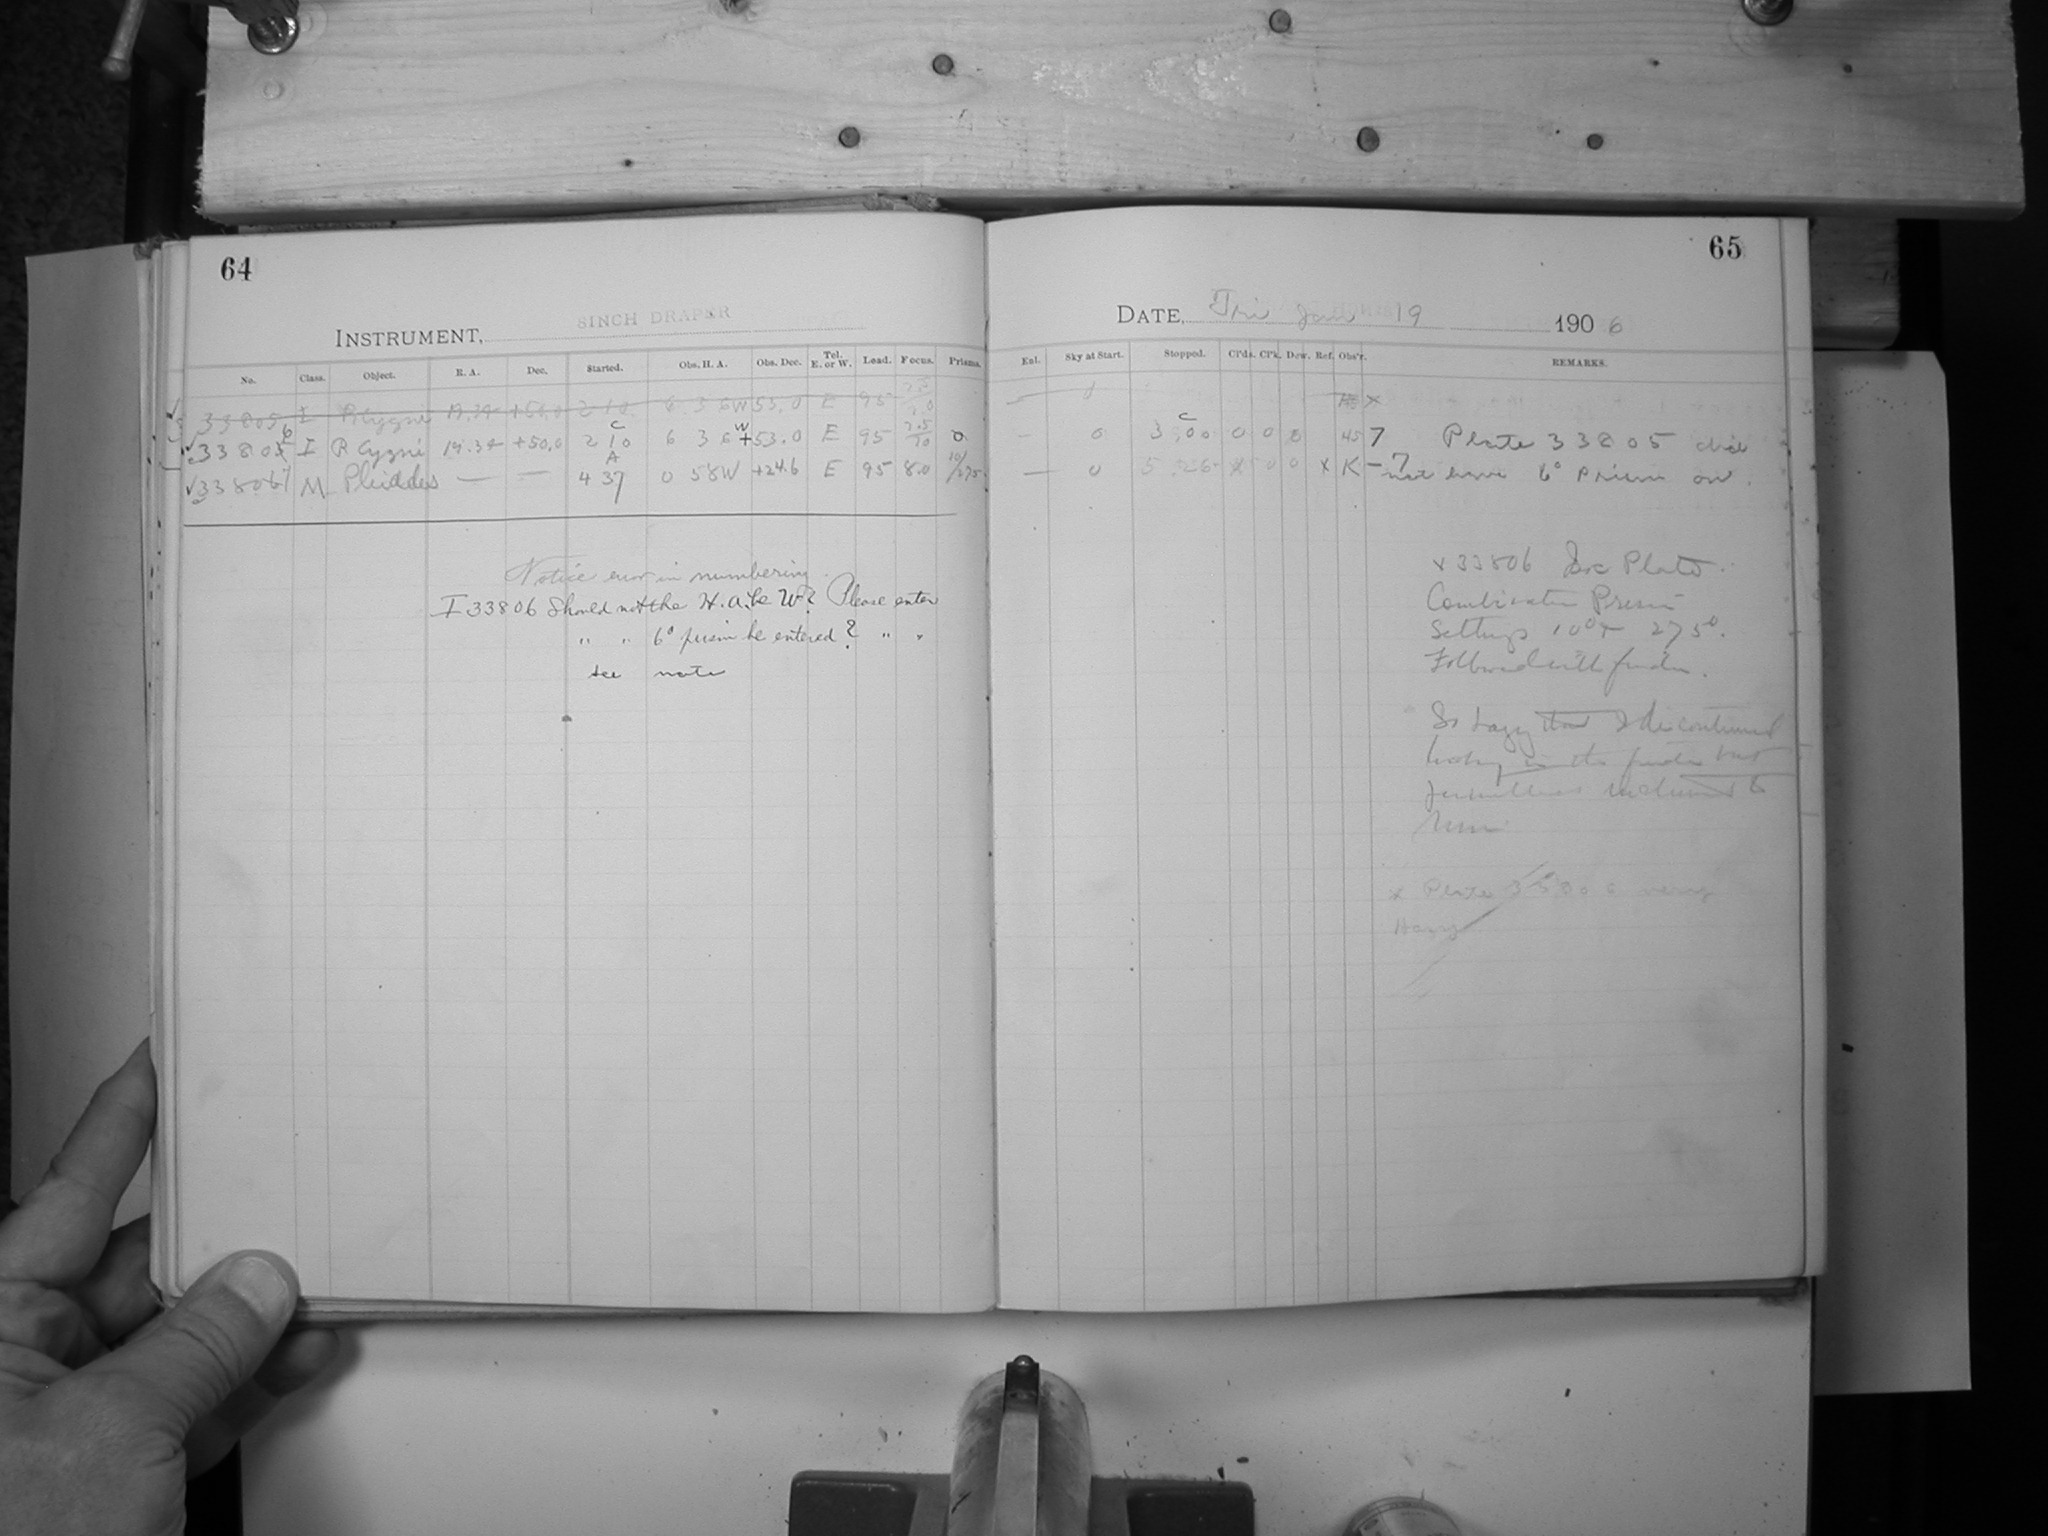 64
INSTRUMENT, 8INCH DRAPER
No. Class. Object. R. A. Dec. Started. Obs. H. A. Obs. Dec. Tel. E. or W. Load. Focus. Prisms.
I R Cygni 19.34 +50.0 2 10 6 36W 53.0 E 95
33806 I R Cygni 19.34 +50.0 2 10 6 36W +53.0 E 95 0
33807 M Pleiades — — 4 37 0 58W +24.6 E 95 8.0 10/275
Notice error in numbering.
I 33806 Should not the H.a. be W? Please enter
" " 6° prism be entered? " "
see note
65
DATE, Fri Jan 19 1906
Enl. Sky at Start. Stopped. Cl'ds. Cl'k. Dew. Ref. Obs'r. REMARKS.
— 0 3.00 0 0 0 45 7 Plate 33805 did
— 0 5 0 0 x K-7 not have 6° Prism on.
x 33806 Plate.
Combination Prism
Settings 10° + 275°.
Followed with finder.
So hazy that I discontinued
looking in the finder but

x Plate very
Hazy